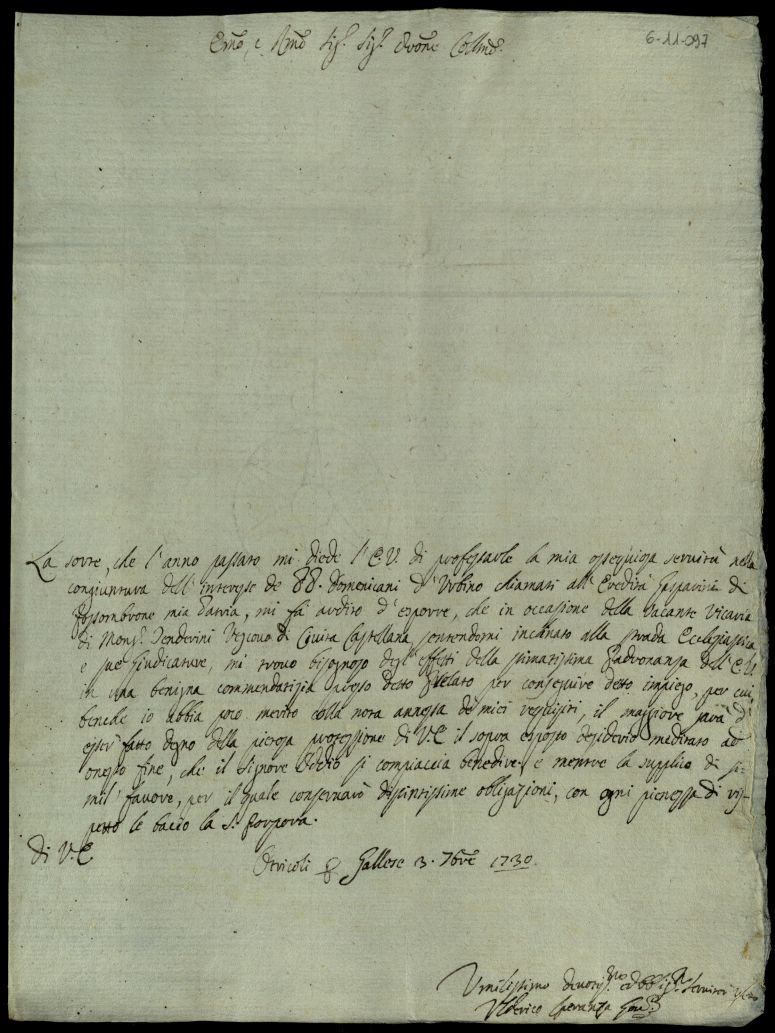 6-11-097
Em̃o, e Rm̃o Sig.r Sig.r Proñe Collmõ
La sorte, che l'anno passato mi diede l'E.V. di professarle la mia ossequiosa servitù nella
congiuntura dell'interesse de PP. Domenicani d'Urbino chiamati all'Eredità Gasparini di
Fossombrone mia Patria, mi fà ardito d'esporre, che in occasione della vacante Vicaria
di Mons.r Tenderini Vescovo di Civita Castellana, sentendomi inclinato alla strada Ecclesiastica
e sue Giudicature, mi trovo bisognoso degl'effetti della stimatissima Padronanza dell'E.V.
in una benigna commendatizia presso detto Prelato per conseguire detto impiego, per cui
benche io abbia poco merito colla nota annessa de miei requisiti, il maggiore sarà d'
esser fatto degno della pietosa protezione di V.E. il sopra esposto desiderio meditato ad
onesto fine, che il Signore Iddio si compiaccia benedire, e mentre la supplico di si-
mil favore, per il quale conserverò distintissime obligazioni, con ogni pienezza di ris-
petto le bacio la S. Porpora.
Di V.E.
Otricoli per Gallese 3. 7bre 1730.
Umilissimo devotis.mo ed obblig.mo Servitor
Ulderico Speranza